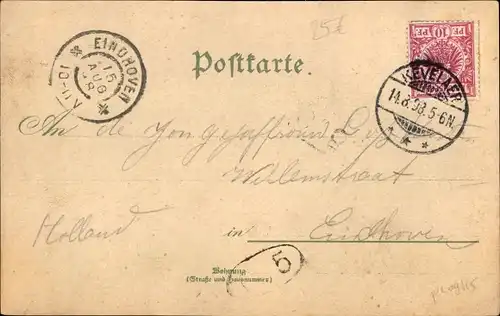 25
Postkarte.
10 PF 10
EINDHOVEN
15
AUG
98
KEVELAER
14.8.98.5-6N.
An de Jongejuffrouw
Willemstraat
Holland
in Eindhoven
5
Wohnung
(Straße und Hausnummer)